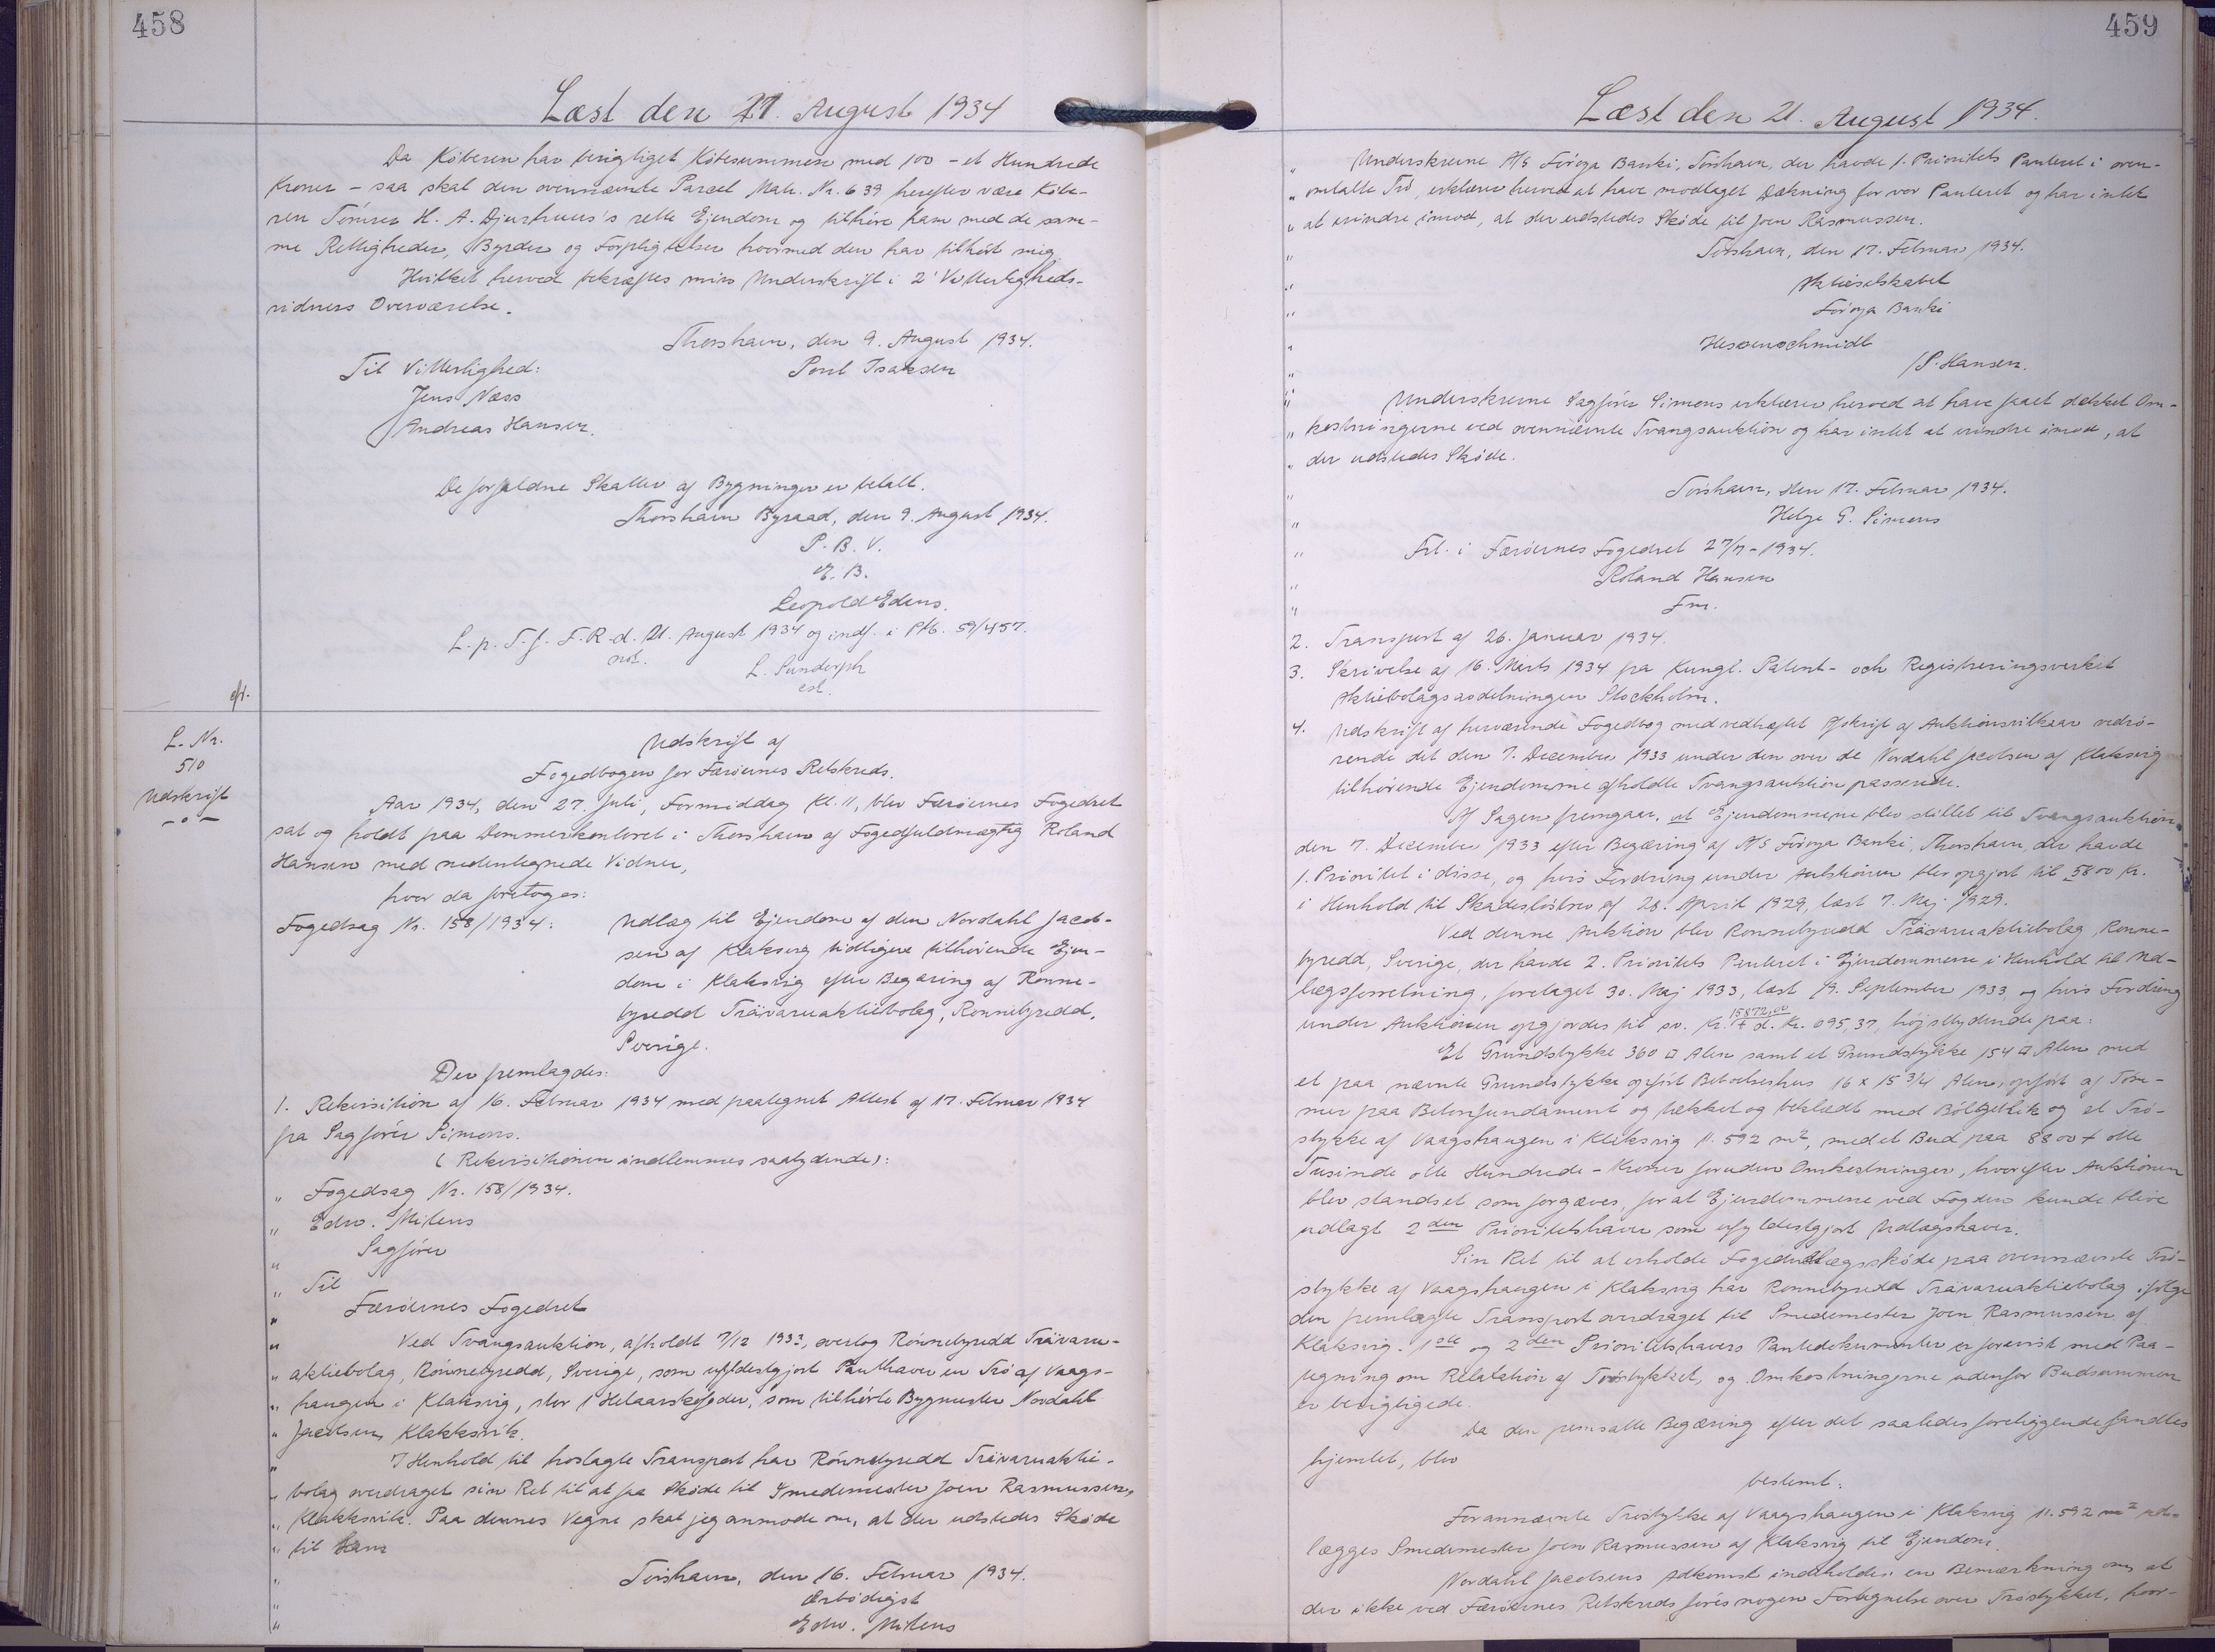 458
Læst den 21. August 1934
Da Köberen har berigtiget Köbesummen med 100 - et Hundrede
Kroner - saa skal den ovennævnte Parcel Matr. Nr. 639 herefter være Köbe-
ren Tömrer H. A. Djurhuus's rette Ejendom og tilhöre ham med de sam-
me Rettigheder, Byrder og Forpligtelser hvormed den har tilhört mig.
Hvilket herved bekræftes min Underskrift i 2 Vitterligheds-
vidners Overværelse.
Thorshavn, den 9. August 1934.
Til Vitterlighed:
Poul Isaksen
Jens Næss
Andreas Hansen.
De forfaldne Skatter af Bygninger er betalt.
Thorshavn Byraad, den 9. August 1934.
P. B. V.
E. B.
Leopold Edens.
L. p. T. f. F. R. d. 21. August 1934 og indf. i Ptb. 59/457.
not.
L. Sundorph
cst.
cfr.
L. Nr.
510
Udskrift
- o -
Udskrift af
Fogedbogen for Færöernes Retskreds.
Aar 1934, den 27. Juli, Formiddag Kl. 11, blev Færöernes Fogedret
sat og holdt paa Dommerkontoret i Thorshavn af Fogedfuldmægtig Roland
Hansen med nedentegnede Vidner,
hvor da foretoges:
Fogedsag Nr. 158/1934:
Udlæg til Ejendom af den Nordahl Jacob-
sen af Klaksvig tidligere tilhörende Ejen-
dom i Klaksvig efter Begæring af Ronne-
byredd Trävaruaktiebolag, Ronnebyredd,
Sverige.
Der fremlagdes:
1. Rekvisition af 16. Februar 1934 med paategnet Attest af 17. Februar 1934
fra Sagförer Simons.
( Rekvisitionen indlemmes saalydende):
" Fogedsag Nr. 158/1934.
" Edw. Mitens
" Sagförer
" Til
" Færöernes Fogedret
" Ved Tvangsauktion, afholdt 7/12 1933, overtog Rönnebyredd Trävaru-
" aktiebolag, Rönnebyredd, Sverige, som uffldestgjort Panthaver en Trö af Vaags-
" haugen i Klaksvig, stor 1 Helaarskofoder, som tilhörte Bygmester Nordahl
" Jacobsen, Klakksvik.
" I Henhold til hoslagte Transport har Rönnebyredd Trävaruaktie-
" bolag overdraget sin Ret til at faa Sköde til Smedemester Joen Rasmussen,
" Klakksvik. Paa dennes Vegne skal jeg anmode om, at der udstedes Sköde
" til Ham
" Torshavn, den 16. Februar 1934.
" Ærbödigst
" Edw. Mitens
459
Læst den 21. August 1934.
" Underskrevne A/S Föroya Banki, Torshavn, der havde 1. Prioritets Panteret i oven-
" omtalte Trö, erklærer herved at have modtaget Dækning for vor Panteret og har intet
" at erindre imod, at der udstedes Sköde til Joen Rasmussen.
" Torshavn, den 17. Februar 1934.
" Aktieselskabet
" Föroya Banki
" Hessenschmidt
" /P. Hansen.
" Underskrevne Sagförer Simons erklærer herved at have faaet dækket Om-
" kostningerne ved ovennævnte Tvangsauktion og har intet at erindre imod, at
" der udstedes Sköde.
" Torshavn, den 17. Februar 1934.
" Helge G. Simons
" Frl. i Færöernes Fogedret 27/7-1934.
" Roland Hansen
" Fm.
2. Transport af 26. Januar 1934.
3. Skrivelse af 16. Marts 1934 fra Kungl. Patent- och Registreringsverket
Aktiebolagsavdelningen Stockholm.
4. Udskrift af herværende Fogedbog med vedhæftet Afskrift af Auktionsvilkaar vedrö-
rende det den 7. December 1933 under den over de Nordahl Jacobsen af Klaksvig
tilhörende Ejendomme afholdte Tvangsauktion passerede.
Af Sagen fremgaar, at Ejendommene blev stillet til Tvangsauktion
den 7. December 1933 efter Begæring af A/S Föroya Banki, Thorshavn, der havde
1. Prioritet i disse, og hvis Fordring under Auktionen blev opgjort til 5800 Kr.
i Henhold til Skadeslösbrev af 26. April 1929, læst 7. Maj 1929.
Ved denne Auktion blev Ronnebyredd Trävaruaktiebolag, Ronne-
byredd, Sverige, der havde 2. Prioritets Panteret i Ejendommene i Henhold til Ud-
lægsforretning, foretaget 30. Maj 1933, læst 19. September 1933, og hvis Fordring
under Auktionen opgjordes til sv. Kr. 15872,00 + d. Kr. 695,37, höjstbydende paa:
Et Grundstykke 360 □ Alen samt et Grundstykke 154 □ Alen med
et paa nævnte Grundstykke opfört Beboelseshus 16 x 15 3/4 Alen, opfört af Töm-
mer paa Betonfundament og tækket og beklædt med Bölgeblik og et Trö-
stykke af Vaagshaugen i Klaksvig 11.592 m², med et Bud paa 8800 + otte
Tusinde otte Hundrede - Kroner foruden Omkostninger, hvorefter Auktionen
blev standset som forgæves, for at Ejendommene ved Fogden kunde blive
udlagt 2den Prioritetshaver som ufyldestgjort Udlægshaver.
Sin Ret til at erholde Fogedudlægsskøde paa ovennævnte Trö-
stykke af Vaagshaugen i Klaksvig har Ronnebyredd Trävaruaktiebolag ifölge
den fremlagte Transport overdraget til Smedemester Joen Rasmussen af
Klaksvig. 1ste og 2den Prioritetshavers Pantedokumenter er forevist med Paa-
tegning om Relaxation af Tröstykket, og Omkostningerne udenfor Budsummen
er berigtigede.
Da den fremsatte Begæring efter det saaledes foreliggende fandtes
hjemlet, blev
bestemt:
Forannævnte Tröstykke af Vaagshaugen i Klaksvig 11.592 m² ud-
lægges Smedemester Joen Rasmussen af Klaksvig til Ejendom.
Nordahl Jacobsens Adkomst indeholder en Bemærkning om, at
der ikke ved Færöernes Retskreds föres nogen Fortegnelse over Tröstykket, hvor-